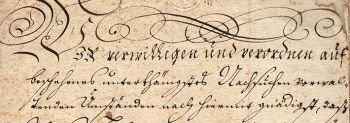 WIR verwilligen und verordnen auf
beschehenes unterthänigstes Nachsuchen vorwal-
tenden Umständen nach hiermit gnädigst, daß